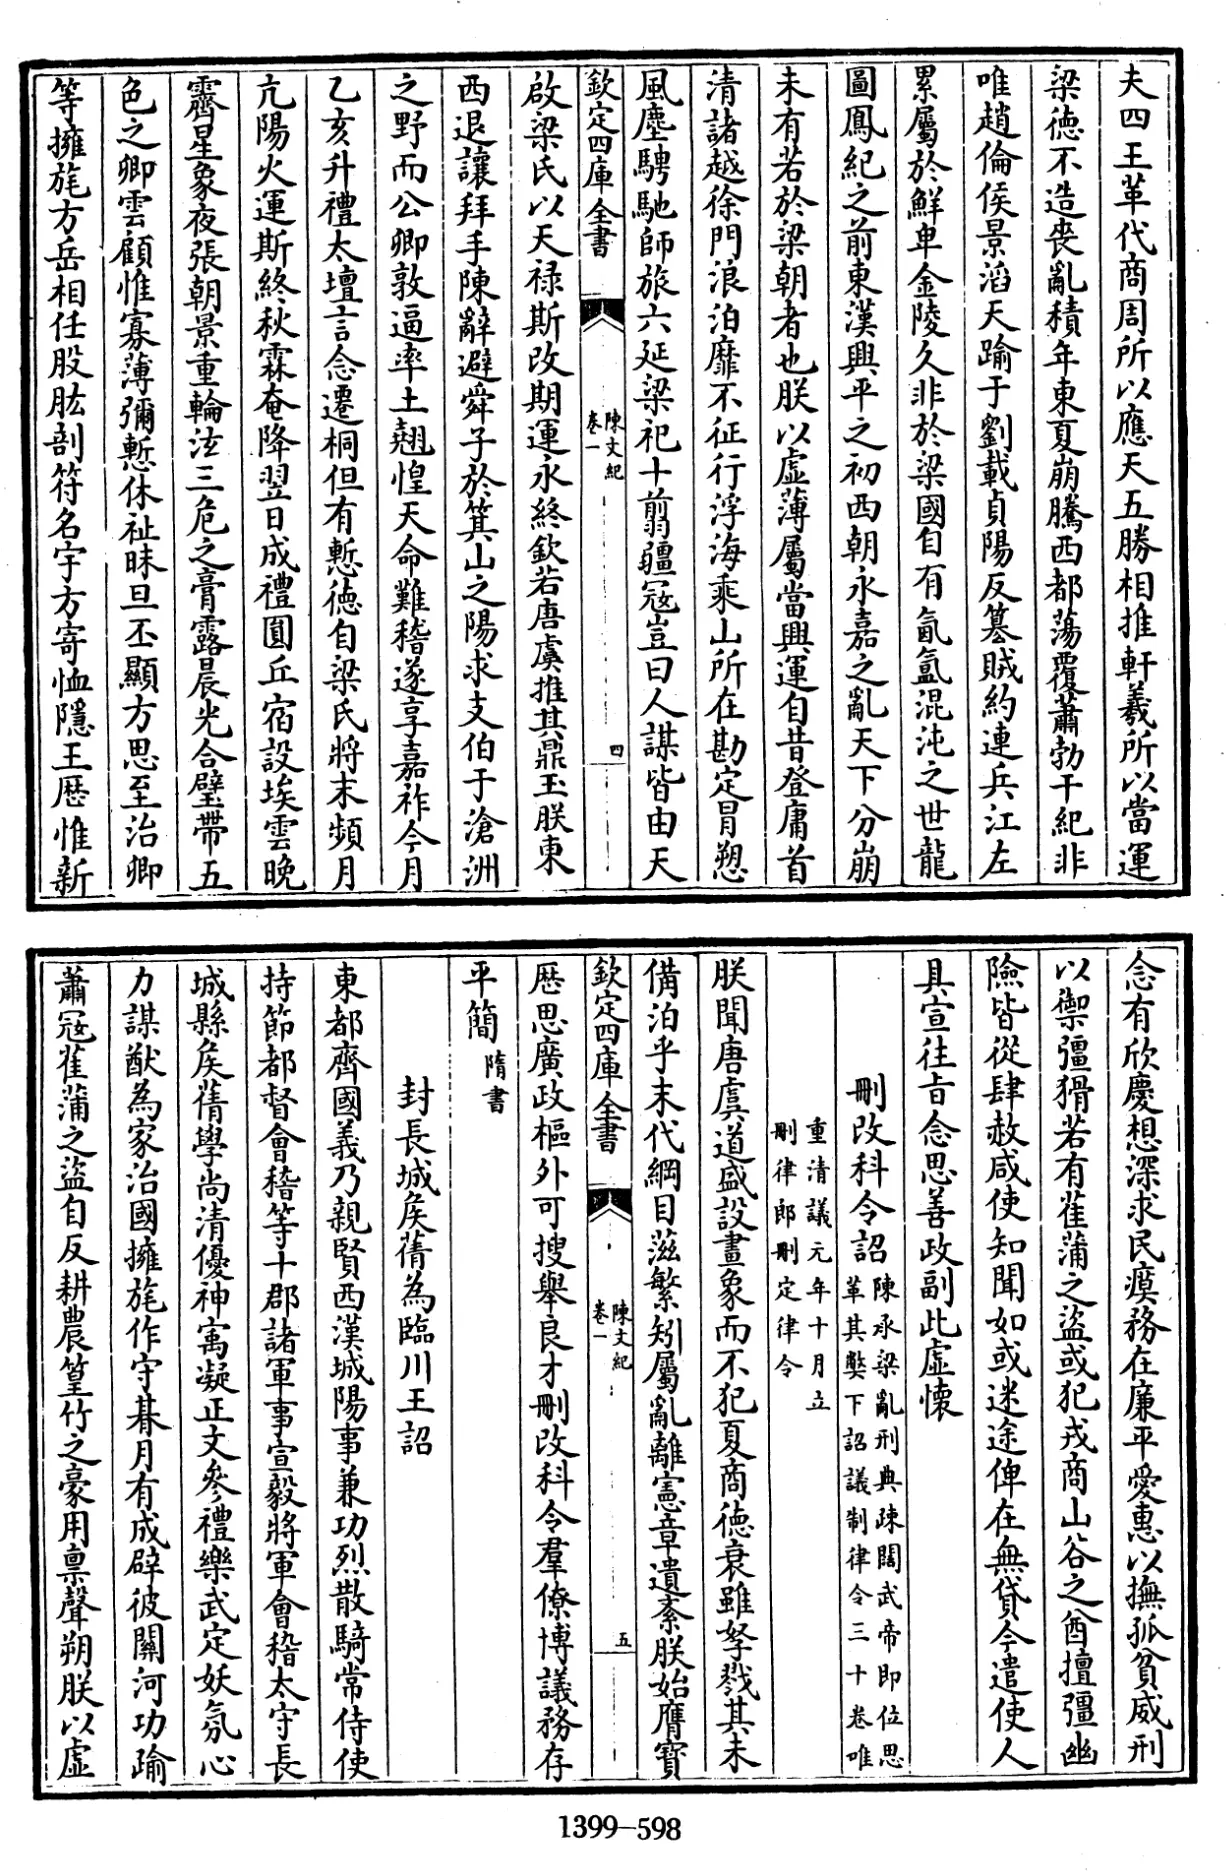 夫四王革代商周所以應天五勝相推軒羲所以當運
梁德不造喪亂積年東夏崩騰西都蕩覆蕭勃干紀非
唯趙倫侯景滔天踰于劉載貞陽反簒賊約連兵江左
累屬於鮮卑金陵久非於梁國自有氤氳混沌之世龍
圖鳳紀之前東漢興平之初西朝永嘉之亂天下分崩
未有若於梁朝者也朕以虛薄屬當興運自昔登庸首
清諸越徐門浪泊靡不征行浮海乘山所在勘定冒愬
風塵騁馳師旅六延梁祀十翦疆寇豈曰人謀皆由天
欽定四庫全書
陳文紀
卷一
四
啟梁氏以天祿斯改期運永終欽若唐虞推其鼎玉朕東
西退讓拜手陳辭避舜子於箕山之陽求支伯于滄洲
之野而公卿敦逼率土翹惶天命難稽遂享嘉祚今月
乙亥升禮太壇言念遷桐但有慙德自梁氏將末頻月
亢陽火運斯終秋霖奄降翌日成禮圓丘宿設埃雲晚
霽星象夜張朝景重輪泫三危之膏露晨光合璧帶五
色之卿雲顧惟寡薄彌慙休祉昧旦丕顯方思至治卿
等擁旄方岳相任股肱剖符名宇方寄恤隱王歷惟新
念有欣慶想深求民瘼務在廉平愛惠以撫孤貧威刑
以禦彊猾若有萑蒲之盜或犯戎商山谷之酋擅彊幽
險皆從肆赦咸使知聞如或迷途俾在無貸今遣使人
具宣往旨念思善政副此虛懷
刪改科令詔
陳承梁亂刑典疎闊武帝即位思
革其弊下詔議制律令三十卷唯
重清議元年十月立
刪律郎刪定律令
朕聞唐虞道盛設畫象而不犯夏商德衰雖孥戮其未
備洎乎末代綱目滋繁矧屬亂離憲章遺紊朕始膺寶
欽定四庫全書
陳文紀
卷一
五
歷思廣政樞外可搜舉良才刪改科令羣僚博議務存
平簡
隋書
封長城侯蒨為臨川王詔
東都齊國義乃親賢西漢城陽事兼功烈散騎常侍使
持節都督會稽等十郡諸軍事宣毅將軍會稽太守長
城縣侯蒨學尚清優神寓凝正文參禮樂武定妖氛心
力謀猷為家治國擁旄作守朞月有成辟彼關河功踰
蕭寇萑蒲之盜自反耕農篁竹之豪用稟聲朔朕以虛
1399-598